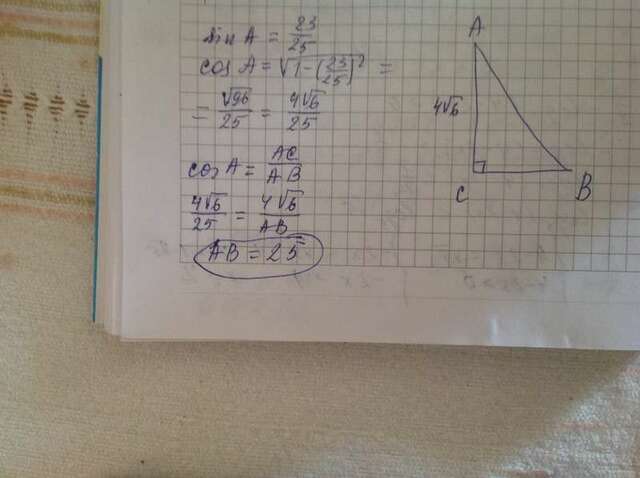 sin A = 23/25
cos A = √(1 - (23/25)²) =
= √96/25 = 4√6/25
cos A = AC/AB
4√6/25 = 4√6/AB
AB = 25
A
4√6
C
B